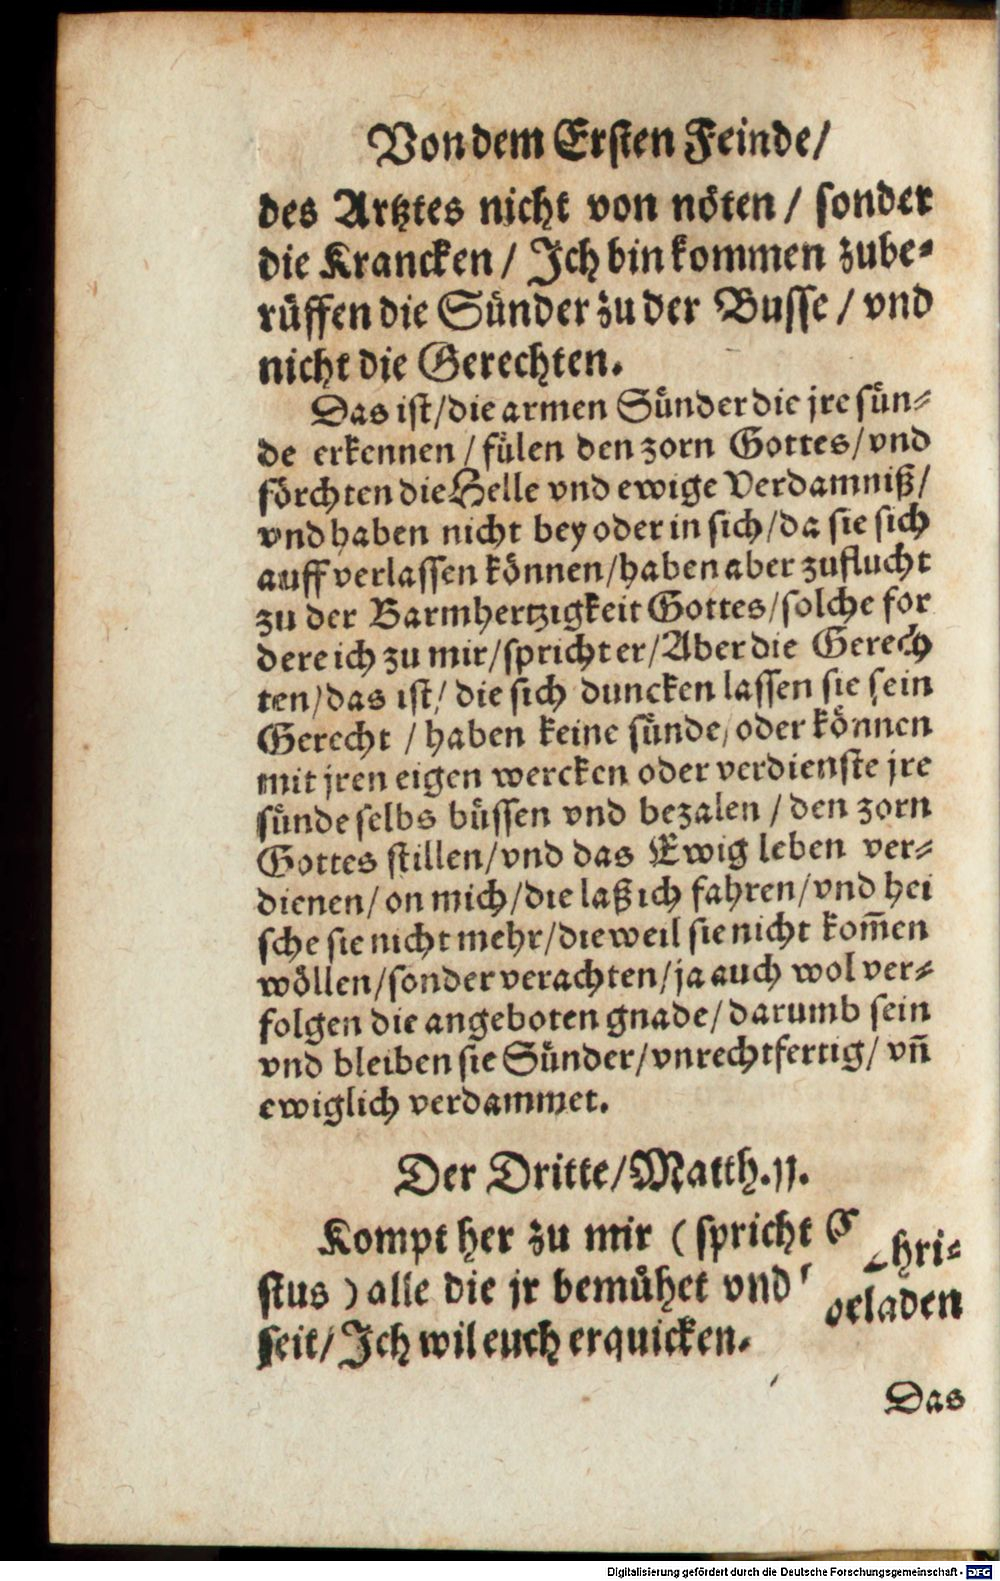 Von dem Ersten Feinde/
des Artztes nicht von nöten / sonder
die Krancken / Ich bin kommen zube⸗
rüffen die Sünder zu der Busse / vnd
nicht die Gerechten.
Das ist/die armen Sünder die jre sün⸗
de erkennen / fülen den zorn Gottes/vnd
förchten die Helle vnd ewige Verdamniß/
vnd haben nicht bey oder in sich/da sie sich
auff verlassen können/haben aber zuflucht
zu der Barmhertzigkeit Gottes/solche for
dere ich zu mir/spricht er/Aber die Gerech
ten/das ist/ die sich duncken lassen sie sein
Gerecht / haben keine sünde/oder können
mit jren eigen wercken oder verdienste jre
sünde selbs büssen vnd bezalen / den zorn
Gottes stillen/vnd das Ewig leben ver⸗
dienen/on mich/die laß ich fahren/vnd hei
sche sie nicht mehr/dieweil sie nicht kom̃en
wöllen/sonder verachten/ja auch wol ver⸗
folgen die angeboten gnade/darumb sein
vnd bleiben sie Sünder/vnrechtfertig/ vñ
ewiglich verdammet.
Der Dritte/Matth.11.
Kompt her zu mir (spricht Chri⸗
stus ) alle die jr bemühet vnd geladen
seit/Ich wil euch erquicken.
Das
Digitalisierung gefördert durch die Deutsche Forschungsgemeinschaft - DFG